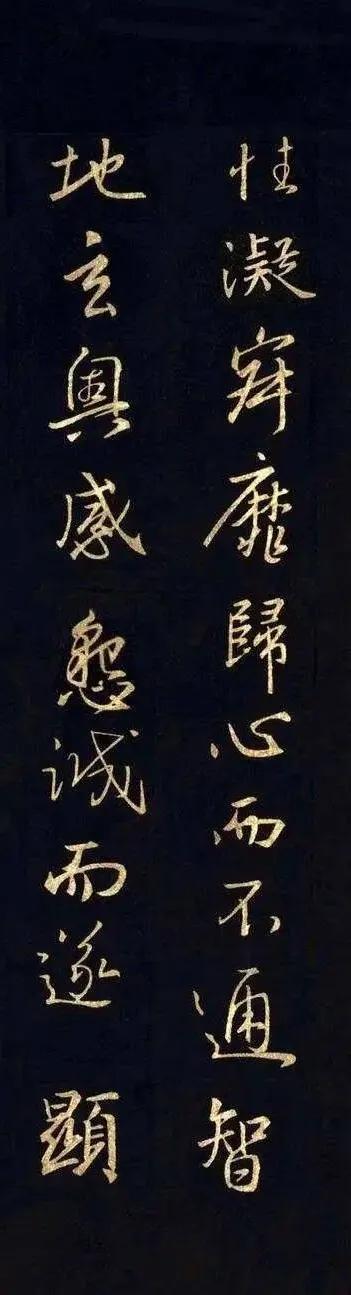 性凝寂靡歸心而不通智
地玄奧感懇誠而遂顯